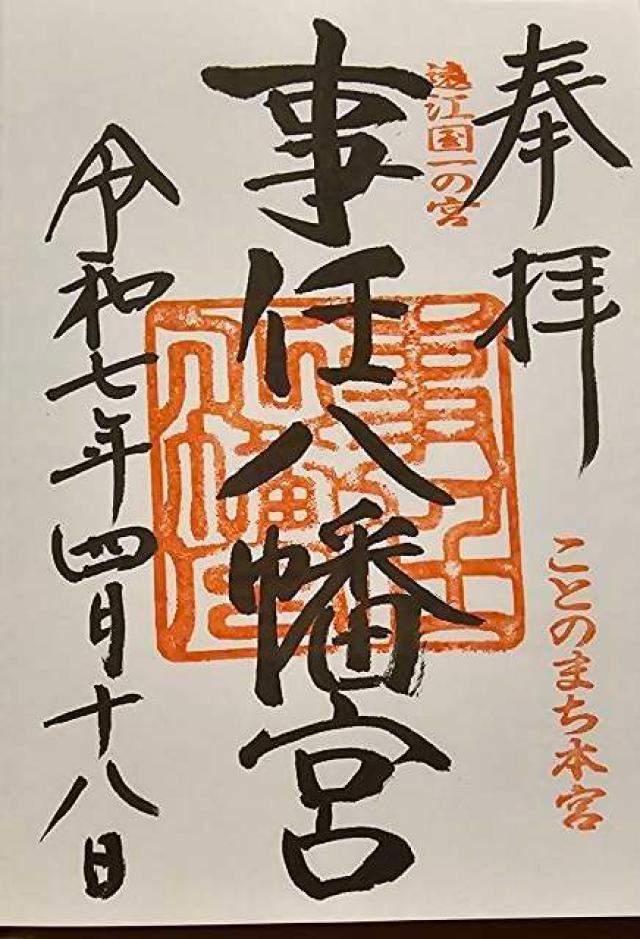 奉拝
ことのまち本宮
遠江国一の宮
事任八幡宮
令和七年四月十八日